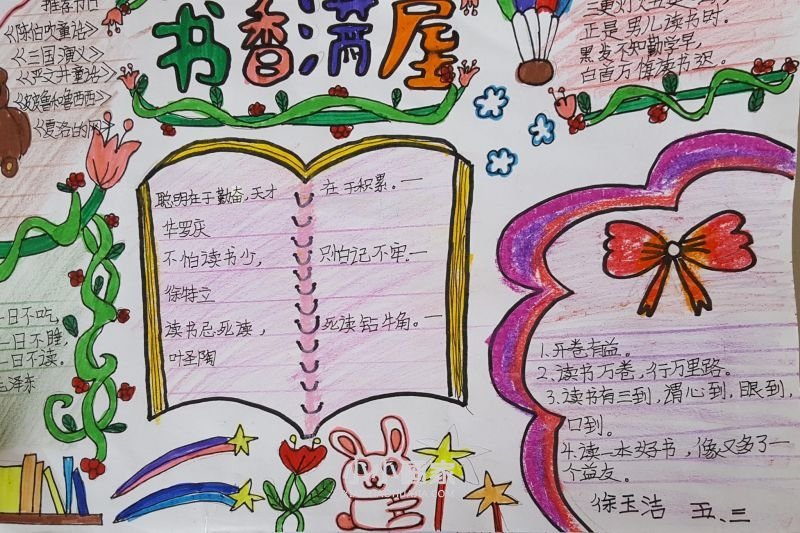 书香满屋
推荐书目
《陈伯吹童话》
《三国演义》
《严文井童话》
《皮皮鲁和鲁西西》
《夏洛的网》
正是男儿读书时。
黑发不知勤学早,
白首方悔读书迟。
聪明在于勤奋,天才在于积累。一
华罗庆
不怕读书少,只怕记不牢.一
徐特立
读书忌死读,死读钻牛角。一
叶圣陶
一日不吃,
一日不睡,
一日不读。
毛泽东
1.开卷有益。
2.读书万卷,行万里路。
3.读书有三到,渭心到,眼到,
口到。
4.读一本好书,像又多了一
个益友。
徐玉洁 五.三